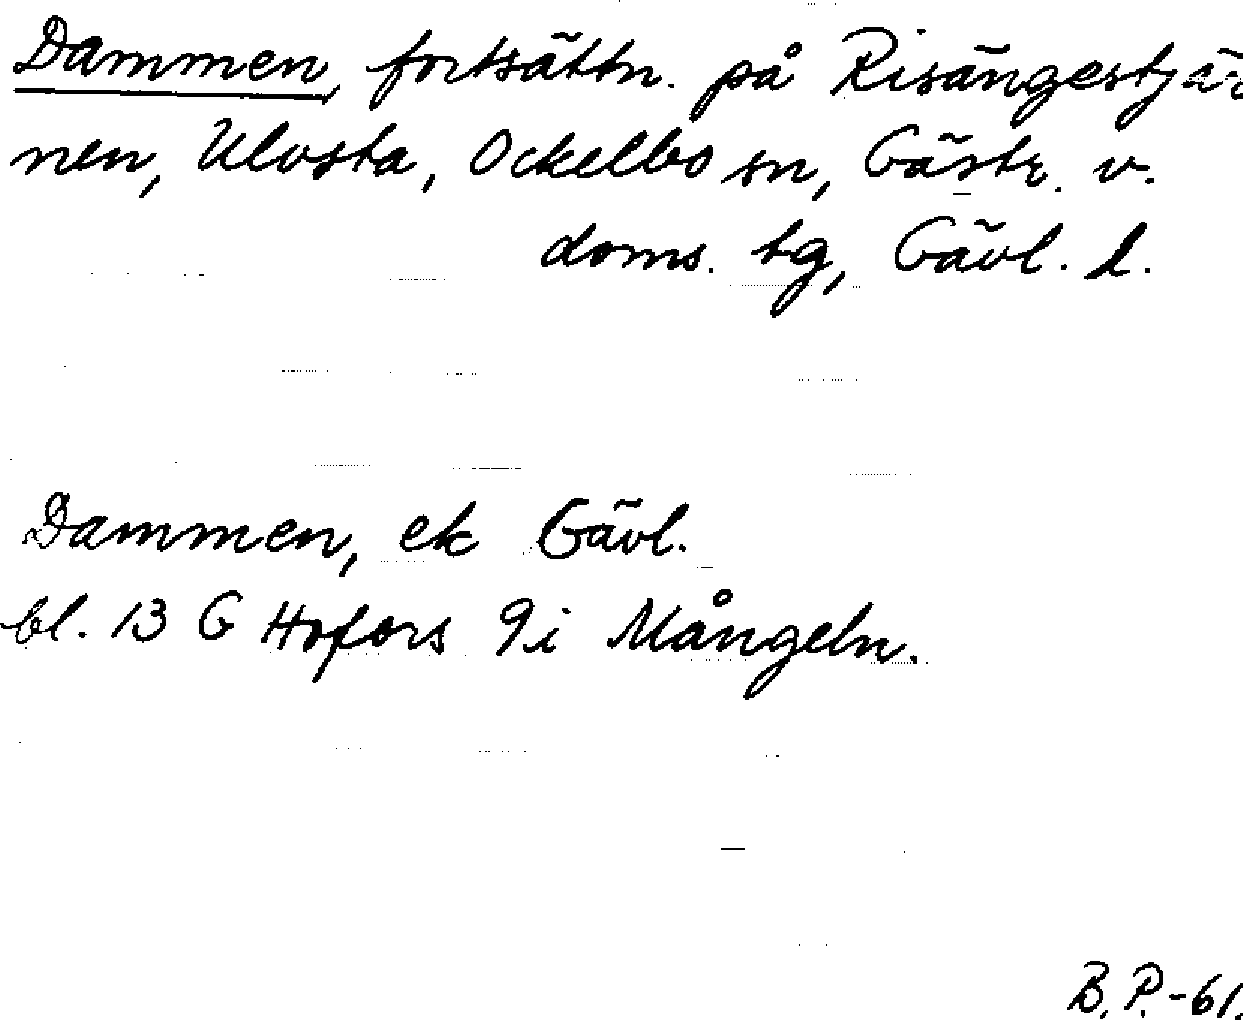 Dammen, fortsättn. på Risängestjär
nen, Ulvsta, Ockelbo sn, Gästr. v.
doms. tg, Gävl. l.
Dammen, ek Gävl.
bl. 13 G Hofors 9i Mångeln.
B.P.-61.